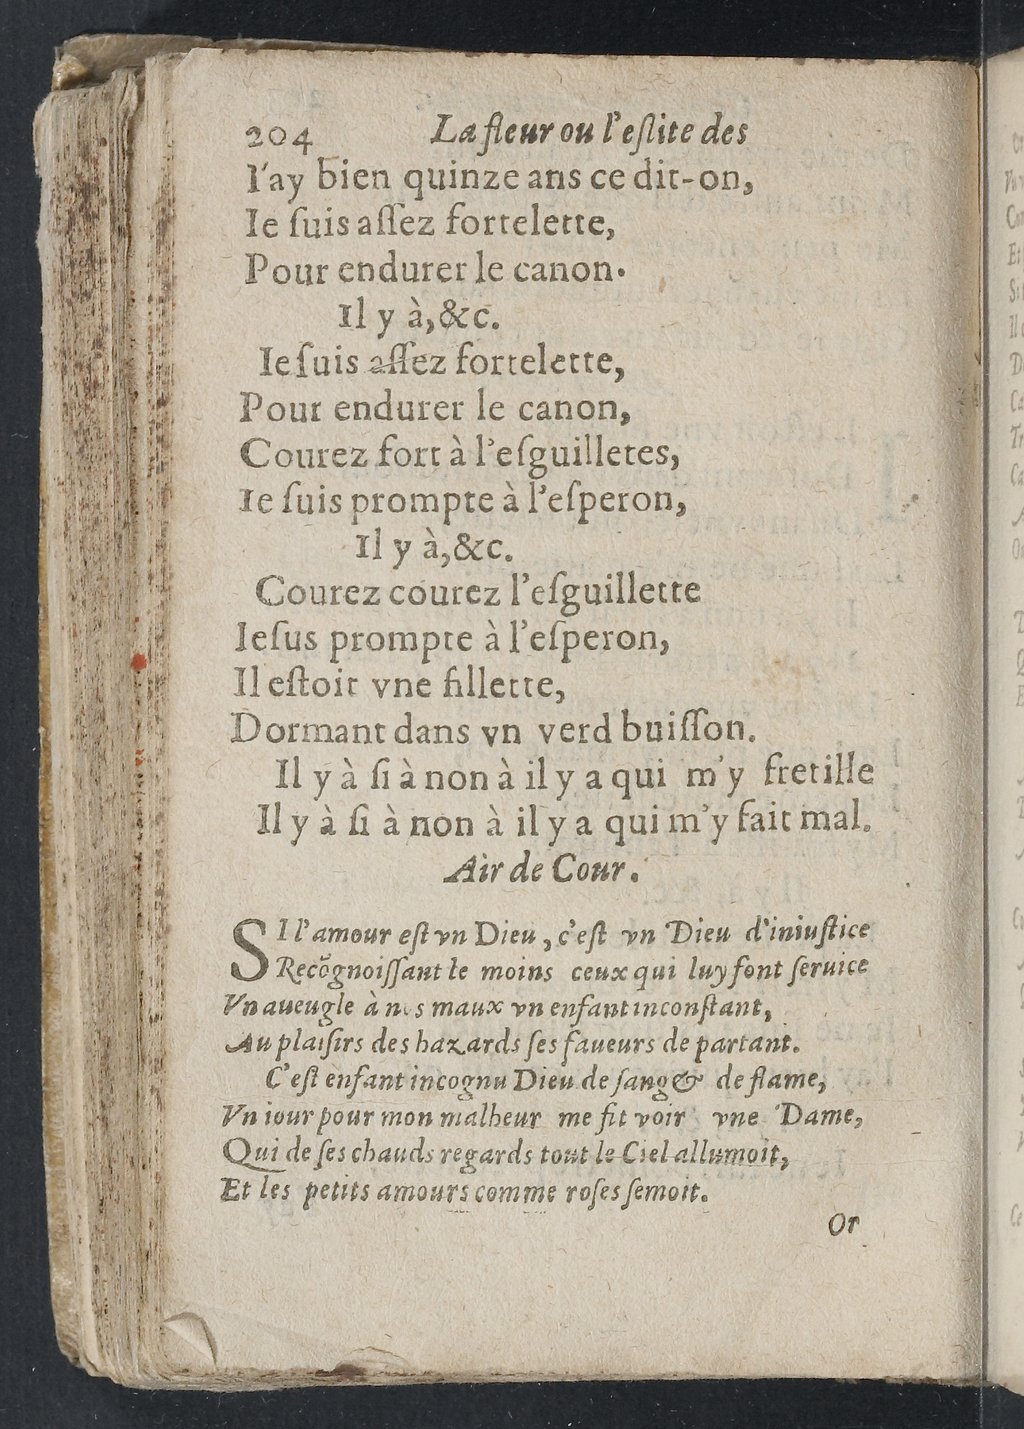 204 La fleur ou l'eſlite des
I'ay bien quinze ans ce dit-on,
Ie ſuis aſſez fortelette,
Pour endurer le canon.
Il y à, &c.
Ie ſuis aſſez fortelette,
Pour endurer le canon,
Courez fort à l'eſguilletes,
Ie ſuis prompte à l'eſperon,
Il y à, &c.
Courez courez l'eſguillette
Ieſus prompte à l'eſperon,
Il eſtoit vne fillette,
Dormant dans vn verd buiſſon.
Il y à ſi à non à il y a qui m'y fretille
Il y à ſi à non à il y a qui m'y fait mal.
Air de Cour.
SI l'amour eſt vn Dieu, c'eſt vn Dieu d'iniuſtice
Recõgnoiſſant le moins ceux qui luy font ſeruice
Vn aueugle à nos maux vn enfant inconſtant,
Au plaiſirs des hazards ſes faueurs de partant.
C'eſt enfant incognu Dieu de ſang & de flame,
Vn iour pour mon malheur me fit voir vne Dame,
Qui de ſes chauds regards tout le Ciel allumoit,
Et les petits amours comme roſes ſemoit.
Or